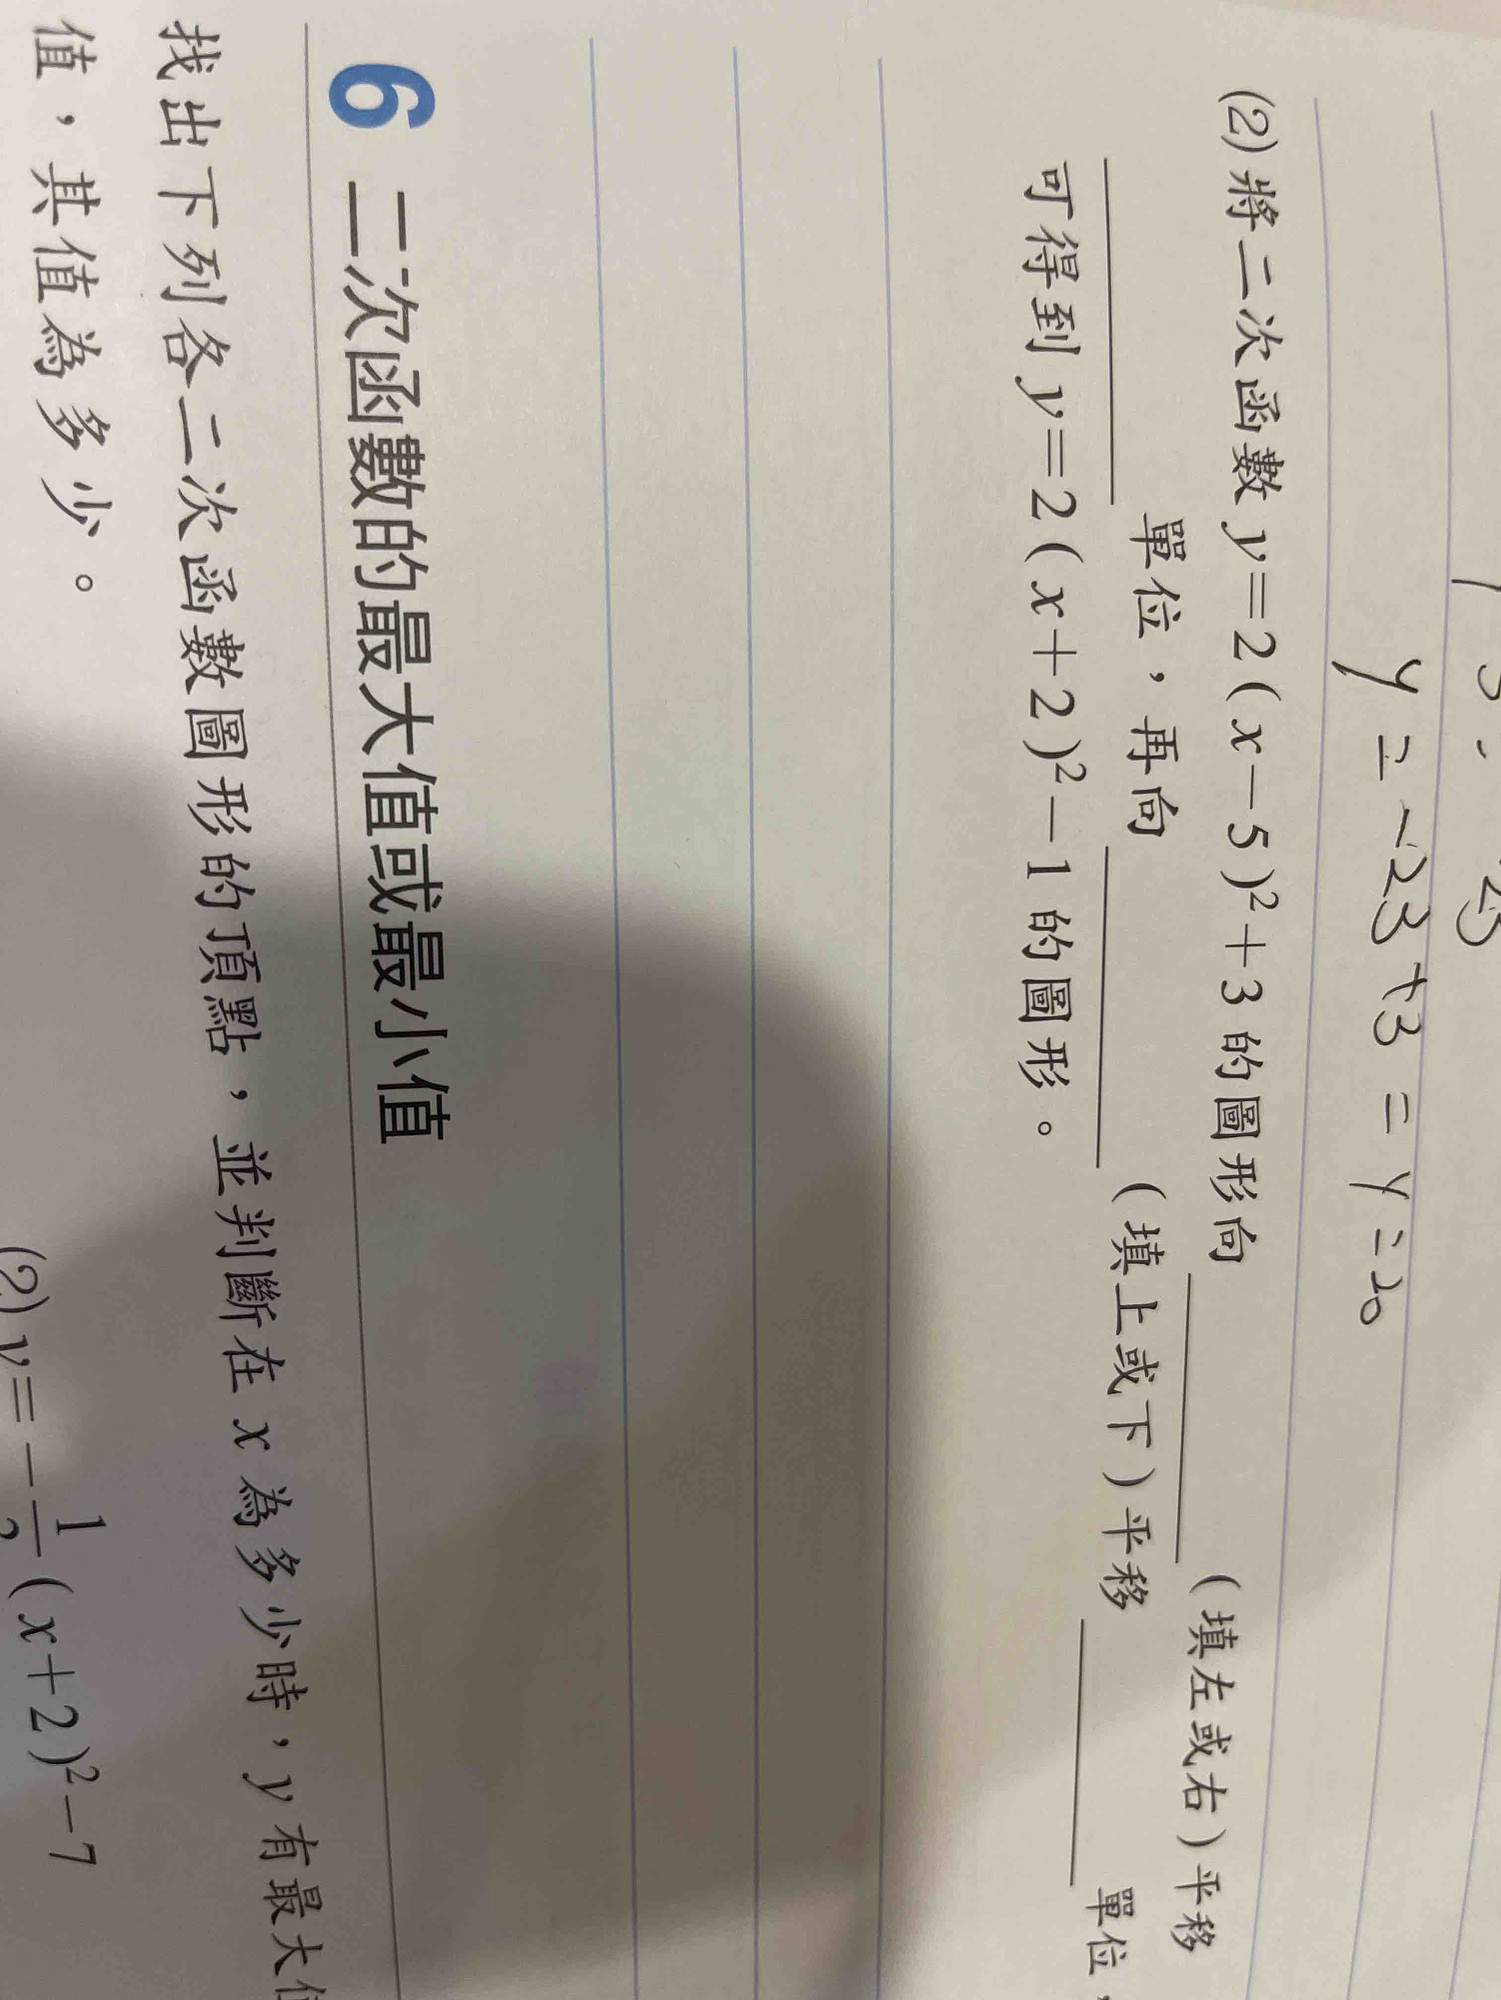 y = -23 + 3 = y = 20
(2)將二次函數 y=2(x-5)²+3 的圖形向________(填左或右)平移
________單位,再向________(填上或下)平移________單位,
可得到 y=2(x+2)²-1 的圖形。
6 二次函數的最大值或最小值
找出下列各二次函數圖形的頂點,並判斷在 x 為多少時,y 有最大
值,其值為多少。
(2) y=-1/2(x+2)²-7